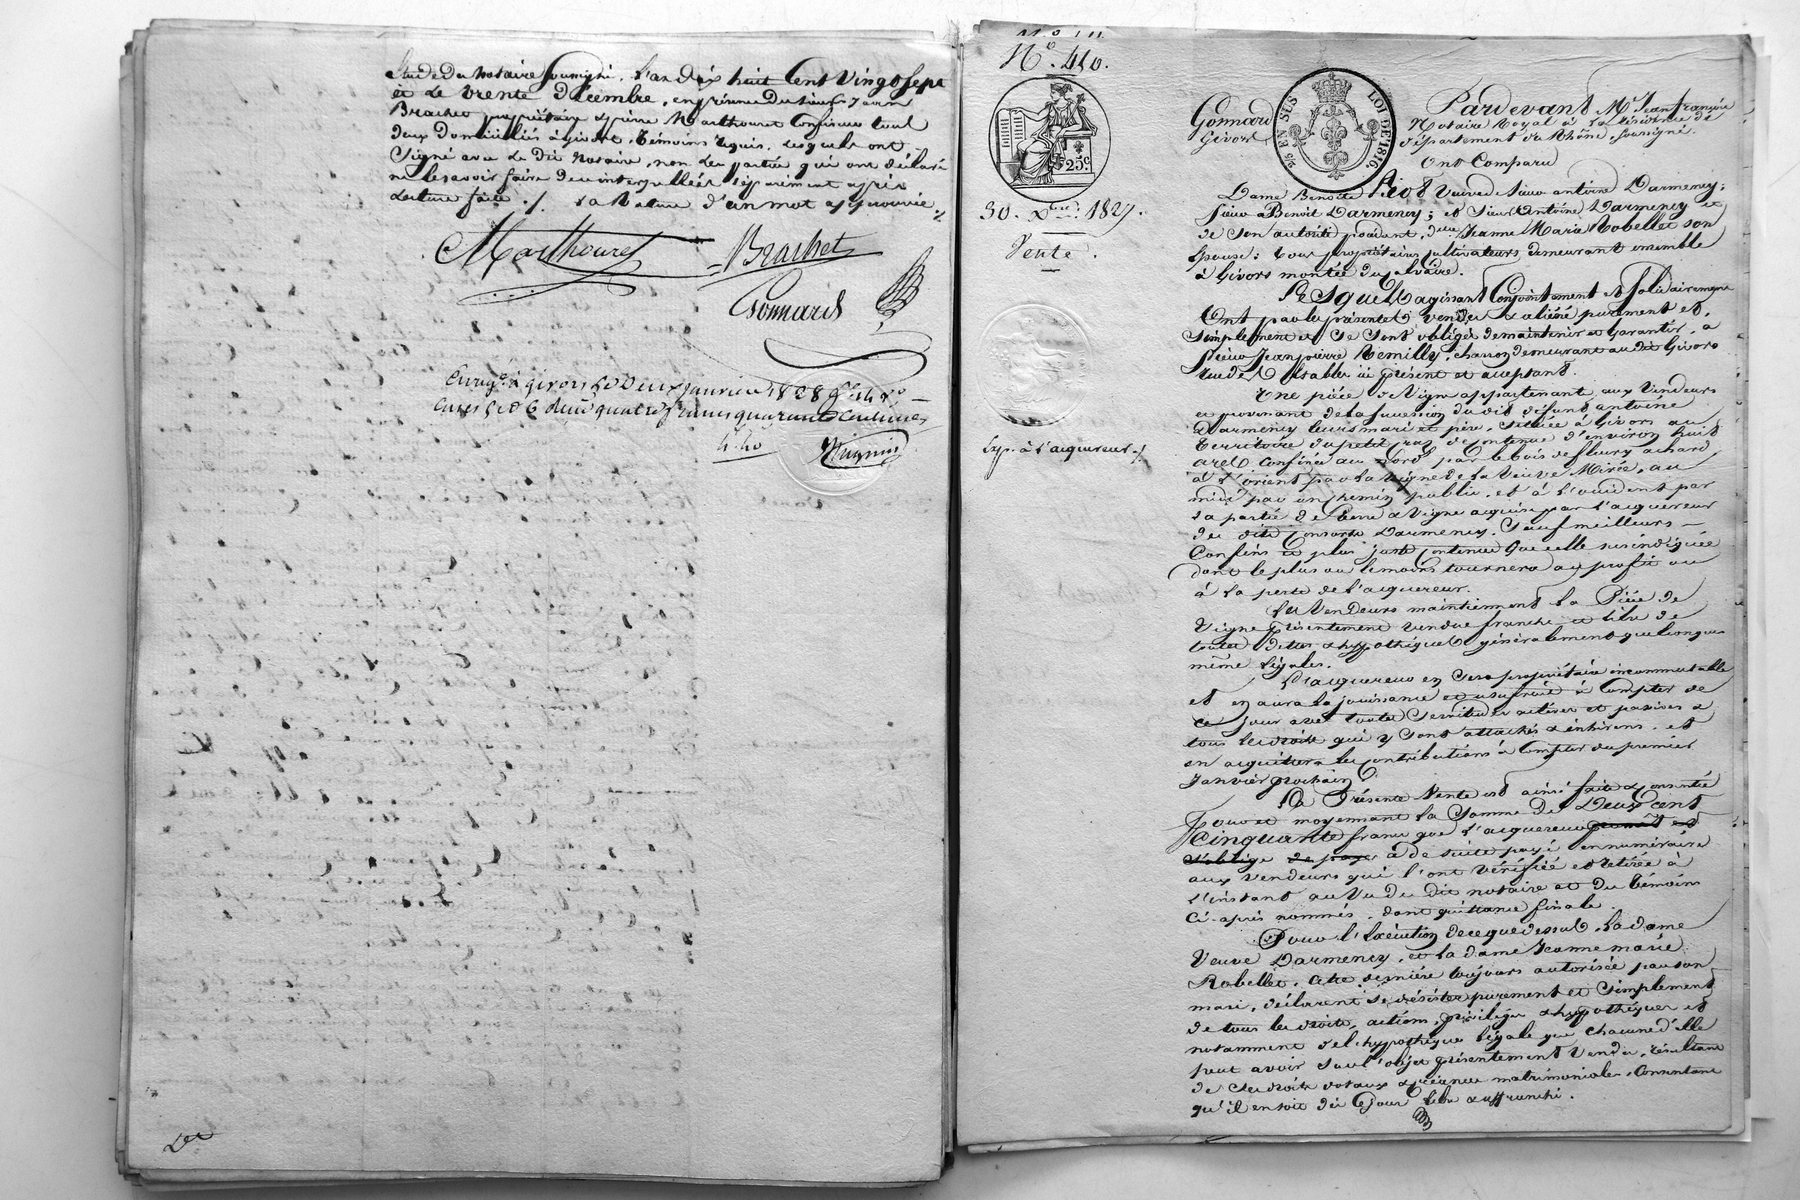 Étude du Notaire soussigné. L'an dix huit Cent Vingt Sept
et Le trente Décembre, en présence des Sieurs Jean
Brachet propriétaire et pierre Marthouret Confiseur tout
deux Domiciliés à givors, témoins requis, Lesquels ont
Signé avec Le dit Notaire, non Les parties qui ont déclaré
ne le savoir faire de ce interpellées séparément après
Lecture faite ./. La Rature d'un mot approuvée ./.
Marthouret Brachet
Gonnard
Enregé. à givors Le Deux janvier 1828
Cases 5 et 6 quatre francs quarante Centimes
4.40
N° 410.
25c
30. Xbre 1827.
Vente.
Exp. à l'acquereur ./.
25 EN SUS LOI DE 1816.
Pardevant Me. Jean françois
Gonnard Notaire Royal à La Résidence de
Givors département du Rhône, soussigné.
Ont Comparu
Dame Benoite Piot Veuve de Sieur antoine Darmency;
Sieur Benoit Darmency; et Sieur Antoine Darmency et
de Son autorité procédant, dame Jeanne Marie Robellet son
épouse; tous propriétaires cultivateurs demeurant ensemble
à Givors montée du calvaire.
Lesquels agissant Conjointement et Solidairement
Ont par les présentes vendu & aliéné purement et
Simplement et Se Sont obligés de maintenir et Garantir, a
Sieur Jean pierre Remilly, charron demeurant au dit Givors
rue des Sables ici présent et acceptant.
Une pièce de Vigne appartenant aux Vendeurs
et provenant de la succession du dit défunt antoine
Darmency leurs mari et père, Située à Givors au
territoire du petit de contenue d'environ huit
ares, Confinée au Nord par le bois de fleury achard,
à L'orient par la vigne de la Veuve Mirée, au
midi par un chemin public, et à L'occident par
La partie de terre & Vigne acquise par L'acquereur
des dits Consorts Darmency. Sauf meilleurs
Confins et plus juste Contenue que celle susindiquée
dont le plus ou le moins tournera au profit ou
à la perte de L'acquereur.
Les Vendeurs maintiennent La Pièce de
Vigne présentement vendue franche et libre de
toutes dettes & hypothèques généralement quelconques
même légales.
L'acquereur en Sera propriétaire incommutable
et en aura La jouissance et usufruit à Compter de
Ce jour avec toutes Servitudes actives et passives &
tous les droits qui y Sont attachés & inhérens. et
en acquittera les Contributions à Compter du premier
Janvier prochain.
La Présente Vente est ainsi faite & consentie
Pour et moyennant La Somme De Deux cent
Cinquante francs que L'acquereur promet et
s'oblige de payer a de suite payé en numéraire
aux vendeurs qui L'ont vérifiée et retirée à
L'instant au Vu du dit notaire et des témoins
Ci-après nommés. dont quittance finale.
Pour L'Exécution de ce que dessus, La dame
Veuve Darmency, et La dame Jeanne marie
Robellet, cette dernière toujours autorisée par son
mari, déclarent Se désister purement et Simplement
de tous les droits, actions, privilèges & hypothèques et
notamment de L'hypothèque légale que chacune d'elle
peut avoir Sur L'objet présentement Vendu, résultant
de Ses droits dotaux & créances matrimoniales, Consentant
qu'il en soit dès Ce jour libre & affranchi.